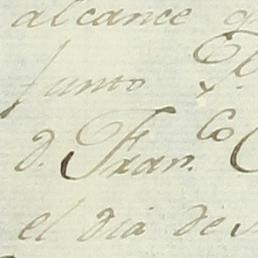 alcance
Junto
d. Fran.co
el dia de